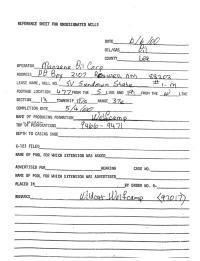 REFERENCE SHEET FOR UNDESIGNATED WELLS
DATE 6/6/00
OIL/GAS Oil
COUNTY Lea
OPERATOR Manzano Oil Corp
ADDRESS PO Box 2107 Roswell NM 88202
LEASE NAME, WELL NO. SV Sundown State #1-M
FOOTAGE LOCATION, 477 FROM THE S LINE AND FROM THE W LINE
SECTION TOWNSHIP RANGE 37e
COMPLETION DATE 5/4/00
NAME OF PRODUCING FORMATION Wolfcamp
TOP OF PERFORATIONS 9466-9471
DEPTH TO CASING SHOE
C-123 FILED
NAME OF POOL FOR WHICH EXTENSION WAS ASKED
ADVERTISED FOR HEARING CASE NO.
NAME OF POOL FOR WHICH EXTENSION WAS ADVERTISED
PLACED IN BY ORDER NO. R-
REMARKS Wildcat Wolfcamp